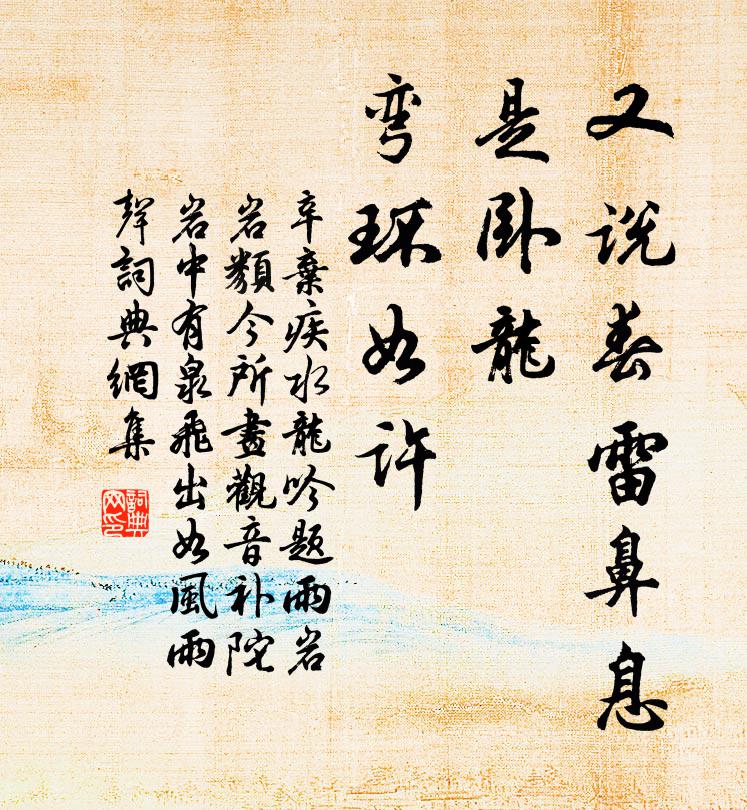 又说春雷鼻息
是卧龍
弯环如许
辛棄疾水龍吟題雨岩
岩類今所畫觀音补陀
岩中有泉飛出如風雨
聲詞典網集
詞典
网印